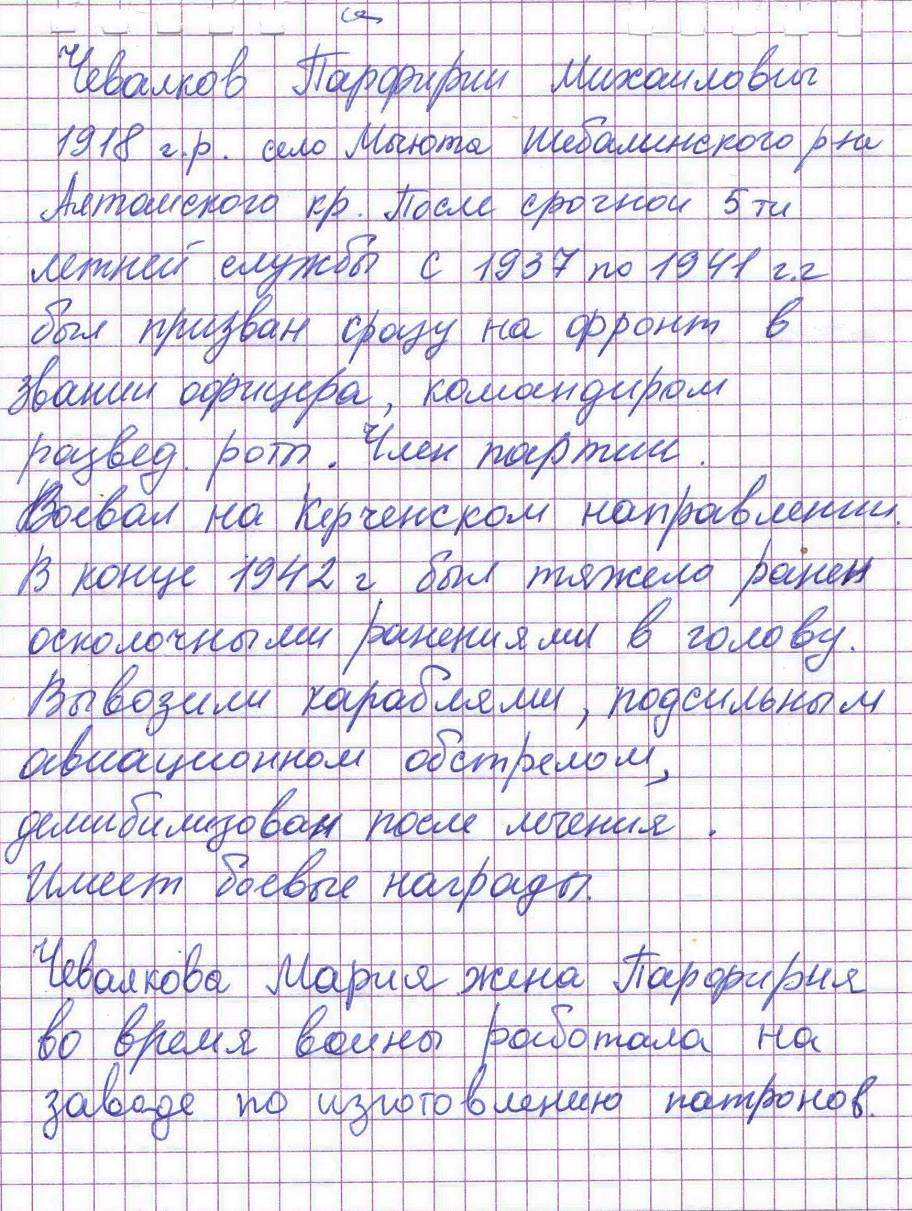 Чевалков Парфирии Михаилович
1918 г.р. село Мыюта Шебалинского р на
Алтаиского кр. После срочнои 5 ти
летней службы с 1937 по 1941 г.г
был призван сразу на фронт в
звании офицера, командиром
развед. роты. Член партии.
Воевал на Керченском направлении.
В конце 1942 г был тяжело ранен
осколочными ранениями в голову.
Вывозили караблями, подсильным
авиационном обстрелом,
демибилизован после лечения.
Имеет боевые награды.
Чевалкова Мария жена Парфирия
во время воины работала на
заводе по изготовлению патронов.